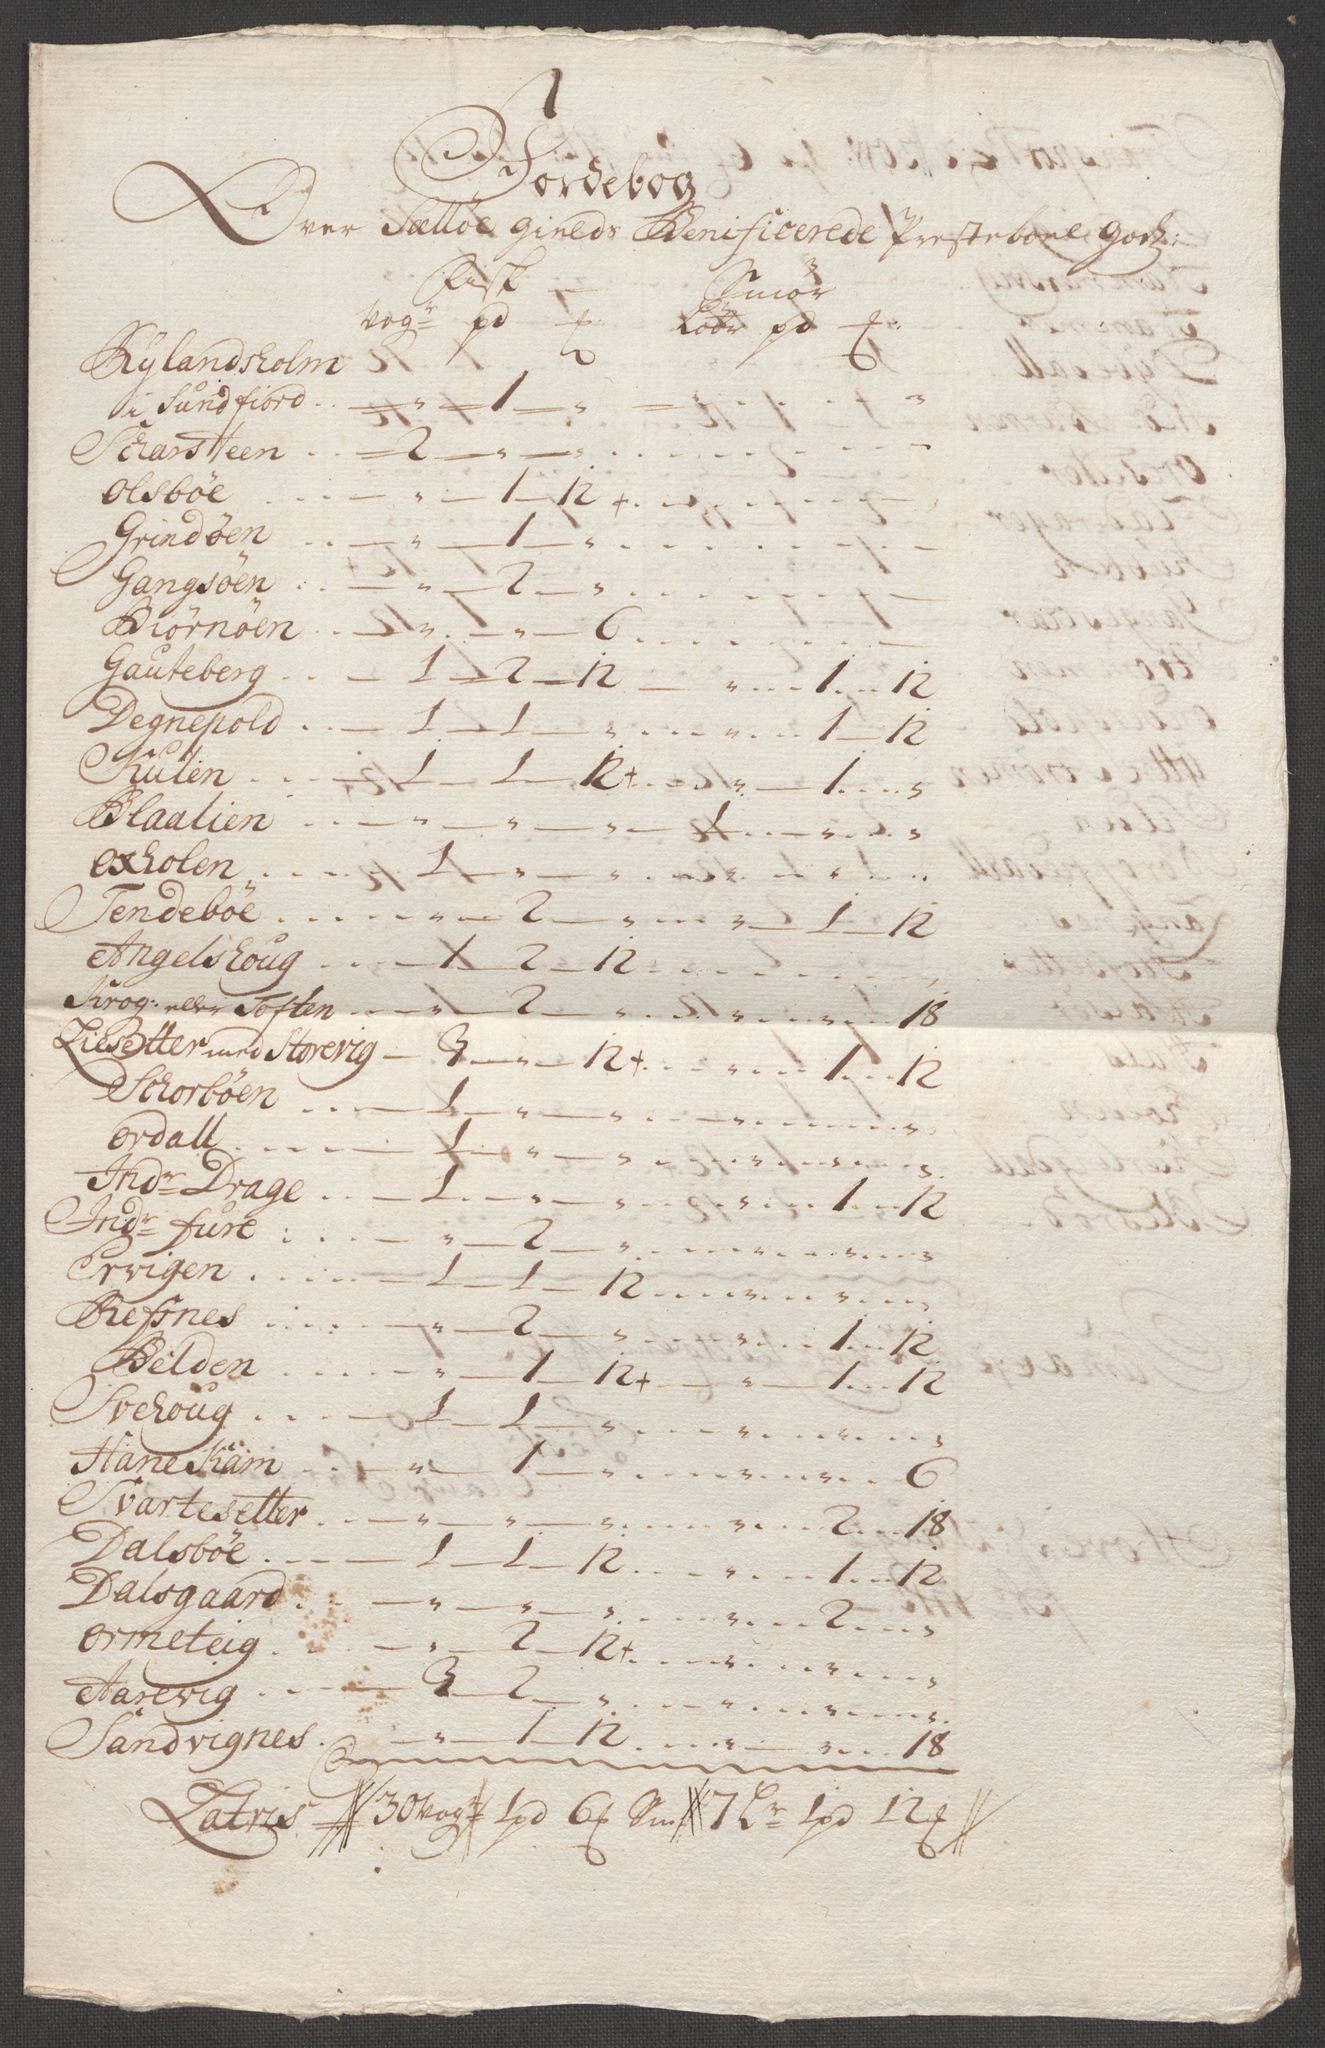 Jordebog
Over Sælløe gields Benificerede Prestebole godz
Fisk Smör
vog pd ℔ Löbr pd ℔
Rylandsholm
i Sundfiord - „ - 1 - „ - „
Scharsteen - 2 - „ - „
Olsböe - „ - 1 - 12 +
Grindöen - „ - 1 - „
Gangsöen - „ - 2 - „
Biörnöen - „ - „ - 6
Gauteberg - 1 - 2 - 12 - „ - 1 - 12
Degnepold - 1 - 1 - „ - „ - 1 - 12
Kulen - 1 - 1 - 12 + - „ - 1 - „
Blaalien - „ - „ - „ - 1 - „ - „
Oxholen - 1 - „ - „ - „ - „ - „
Tendeböe - „ - 2 - „ - „ - 1 - 12
Angelskoug - 1 - 2 - 12
Krog eller Toften - „ - 2 - „ - „ - „ - 18
Liesetter med Storevig - 3 - „ - 12 + - „ - 1 - 12
Schorböen - 1 - „ - „ - „ - „ - „
Ordall - 1 - „ - „ - „ - „ - „
Indr Drage - 1 - „ - „ - „ - 1 - 12
Indr fure - „ - 2 - „ - „ - „ - „
Ervigen - 1 - 1 - 12 - „ - „ - „
Refsnes - „ - 2 - „ - „ - 1 - 12
Belden - „ - 1 - 12 + - „ - 1 - 12
Svehoug - 1 - 1 - „ - „ - „ - „
Hanekam - „ - 1 - „ - „ - „ - 6
Svartesetter - „ - „ - „ - „ - 2 - 18
Dalsböe - 1 - 1 - 12 - „ - 1 - 12
Dalsgaard - „ - „ - „ - „ - 2 - „
Ormeteig - „ - 2 - 12 + - „ - „ - „
Aarevig - 3 - 2 - „ - „ - „ - „
Sandvignes - „ - 1 - 12 - „ - „ - 18
Latris 30 vogr 1 pd 6 ℔ Sm 7 Lr 1 pd 12 ℔